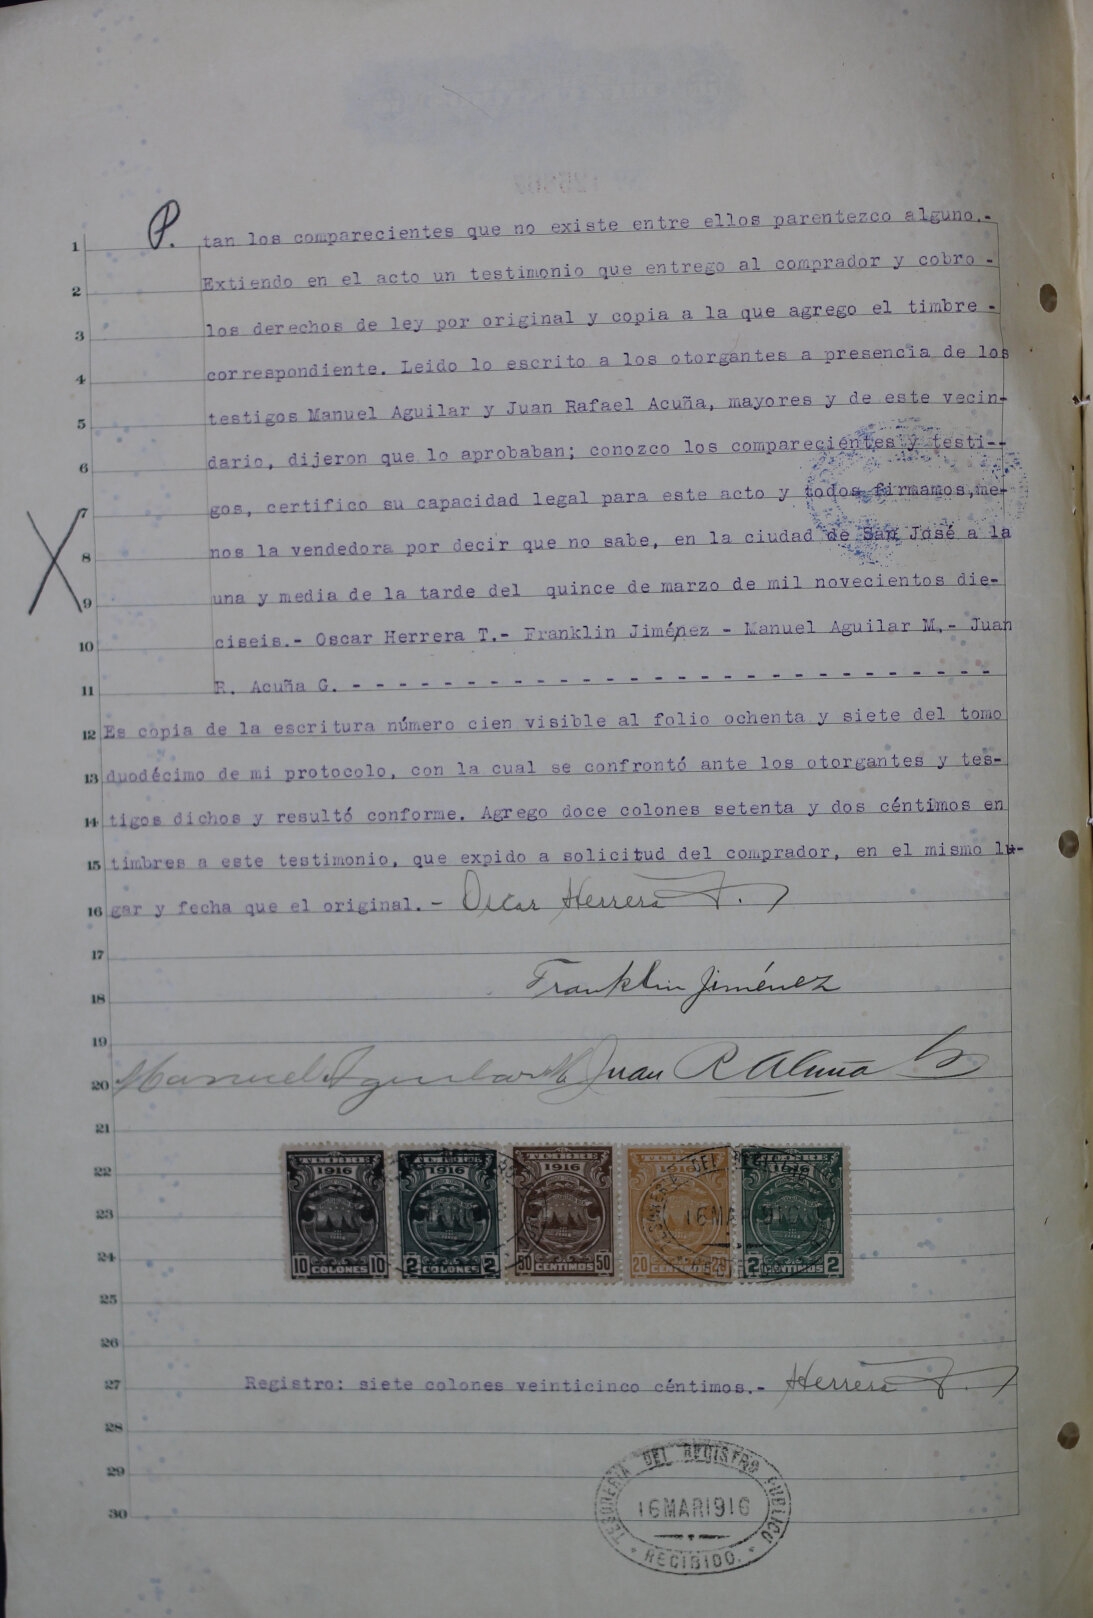 P.
1 tan los comparecientes que no existe entre ellos parentezco alguno.-
2 Extiendo en el acto un testimonio que entrego al comprador y cobro -
3 los derechos de ley por original y copia a la que agrego el timbre -
4 correspondiente. Leido lo escrito a los otorgantes a presencia de los
5 testigos Manuel Aguilar y Juan Rafael Acuña, mayores y de este vecin-
6 dario, dijeron que lo aprobaban; conozco los comparecientes y testi--
7 gos, certifico su capacidad legal para este acto y todos firmamos,me-
8 nos la vendedora por decir que no sabe, en la ciudad de San José a la
9 una y media de la tarde del quince de marzo de mil novecientos die-
10 ciseis.- Oscar Herrera T.- Franklin Jiménez - Manuel Aguilar M.- Juan
11 R. Acuña G. - - - - - - - - - - - - - - - - - - - - - - - - - - - -
12 Es copia de la escritura número cien visible al folio ochenta y siete del tomo
13 duodécimo de mi protocolo, con la cual se confrontó ante los otorgantes y tes-
14 tigos dichos y resultó conforme. Agrego doce colones setenta y dos céntimos en
15 timbres a este testimonio, que expido a solicitud del comprador, en el mismo lu-
16 gar y fecha que el original.- Oscar Herrera T.
17
18 Franklin Jiménez
19
20 Manuel Aguilar M. Juan R Acuña G
21
22 TIMBRE 1916 TIMBRE 1916 TIMBRE 1916 TIMBRE 1916 TIMBRE 1916
23 16 MAR 1916
24 10 COLONES 10 2 COLONES 2 50 CENTIMOS 50 20 CENTIMOS 20 2 CENTIMOS 2
25
26
27 Registro: siete colones veinticinco céntimos.- Herrera T.
28
29 TESORERIA DEL REGISTRO PUBLICO
30 16 MAR 1916
RECIBIDO.